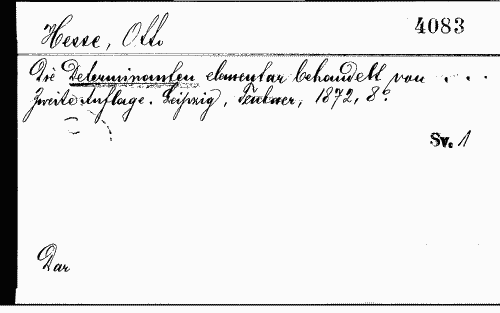 4083
Hesse, Otto
Die Determinanten elementar behandelt von . . .
Zweite Auflage. Leipzig, Teubner, 1872, 8°.
Sv. 1
Dar